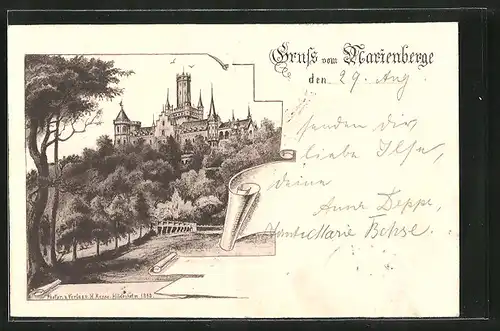 Gruss vom Marienberge
den 29 Aug.
senden dir,
liebe Ilse,
deine
Anna Deppe,
Tante Marie Bohse.
Photogr. u. Verlag v. H. Hildesheim 1893